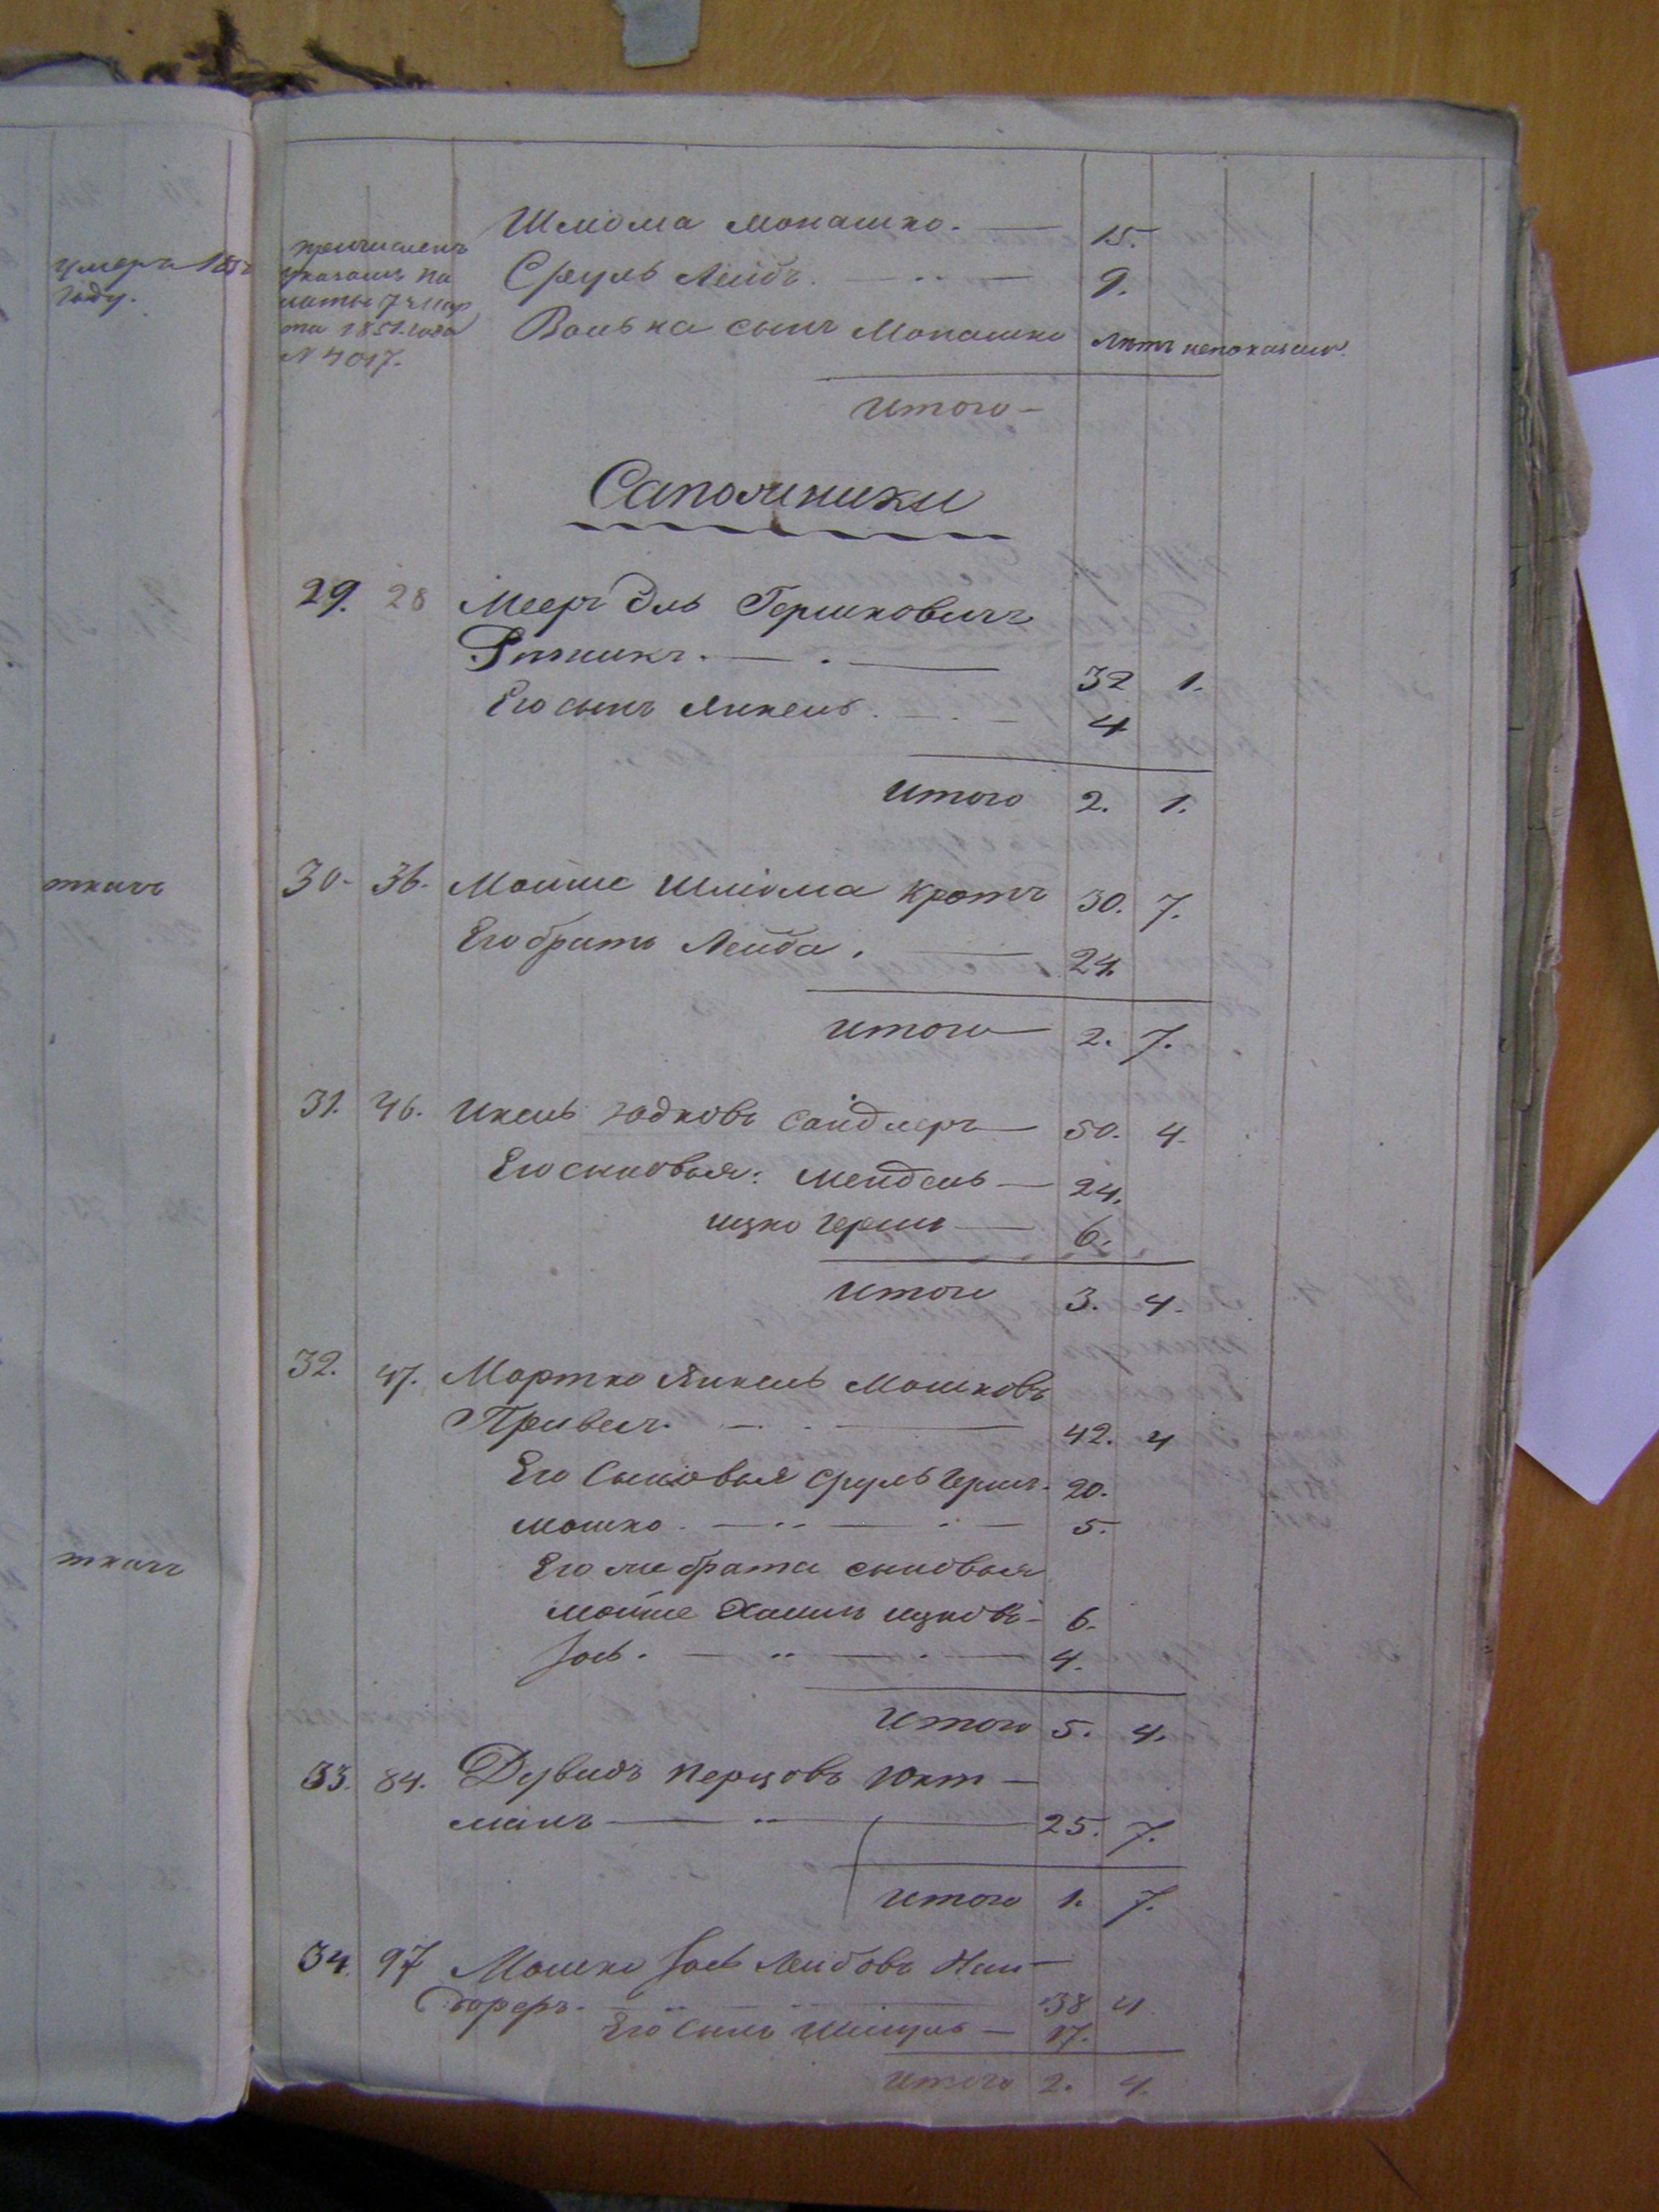 умеръ 185
году.
ткачъ
ткачъ
причисленъ
указомъ па
латы 7 мар
та 1851 года
№ 4017.
Шлiома Монашко. — 15.
Сруль Лейбъ. — 9.
Волька сынъ Монашко лѣтъ непоказано.
Итого —
Сапожники
29. 28 Мееръ Эль Гершковичъ
Рѣзникъ. — 32 1.
Его сынъ Янкель. — 4
Итого 2. 1.
30. 36. Мойше Шлiома Кротъ 30. 7.
Его братъ Лейба. — 24.
Итого 2. 7.
31. 46. Икель Юдковъ Сандлеръ — 50. 4.
Его сыновья: Мендель — 24.
Ицко Герша — 6.
Итого 3. 4.
32. 47. Мортко Янкель Мошковъ
Привесъ. — 42. 4
Его Сыновья Сруль Герш. 20.
Мошко. — 5.
Его же брата сыновья
Мойше Хаимъ Ицковъ — 6.
Iось. — 4.
Итого 5. 4.
33. 84. Дувидъ Перцовъ Юкт —
манъ — 25. 7.
Итого 1. 7.
34. 97 Мошко Iось Лейбовъ Най —
дорфъ. — 38 4.
Его сынъ Шмуль — 17.
Итого 2. 4.